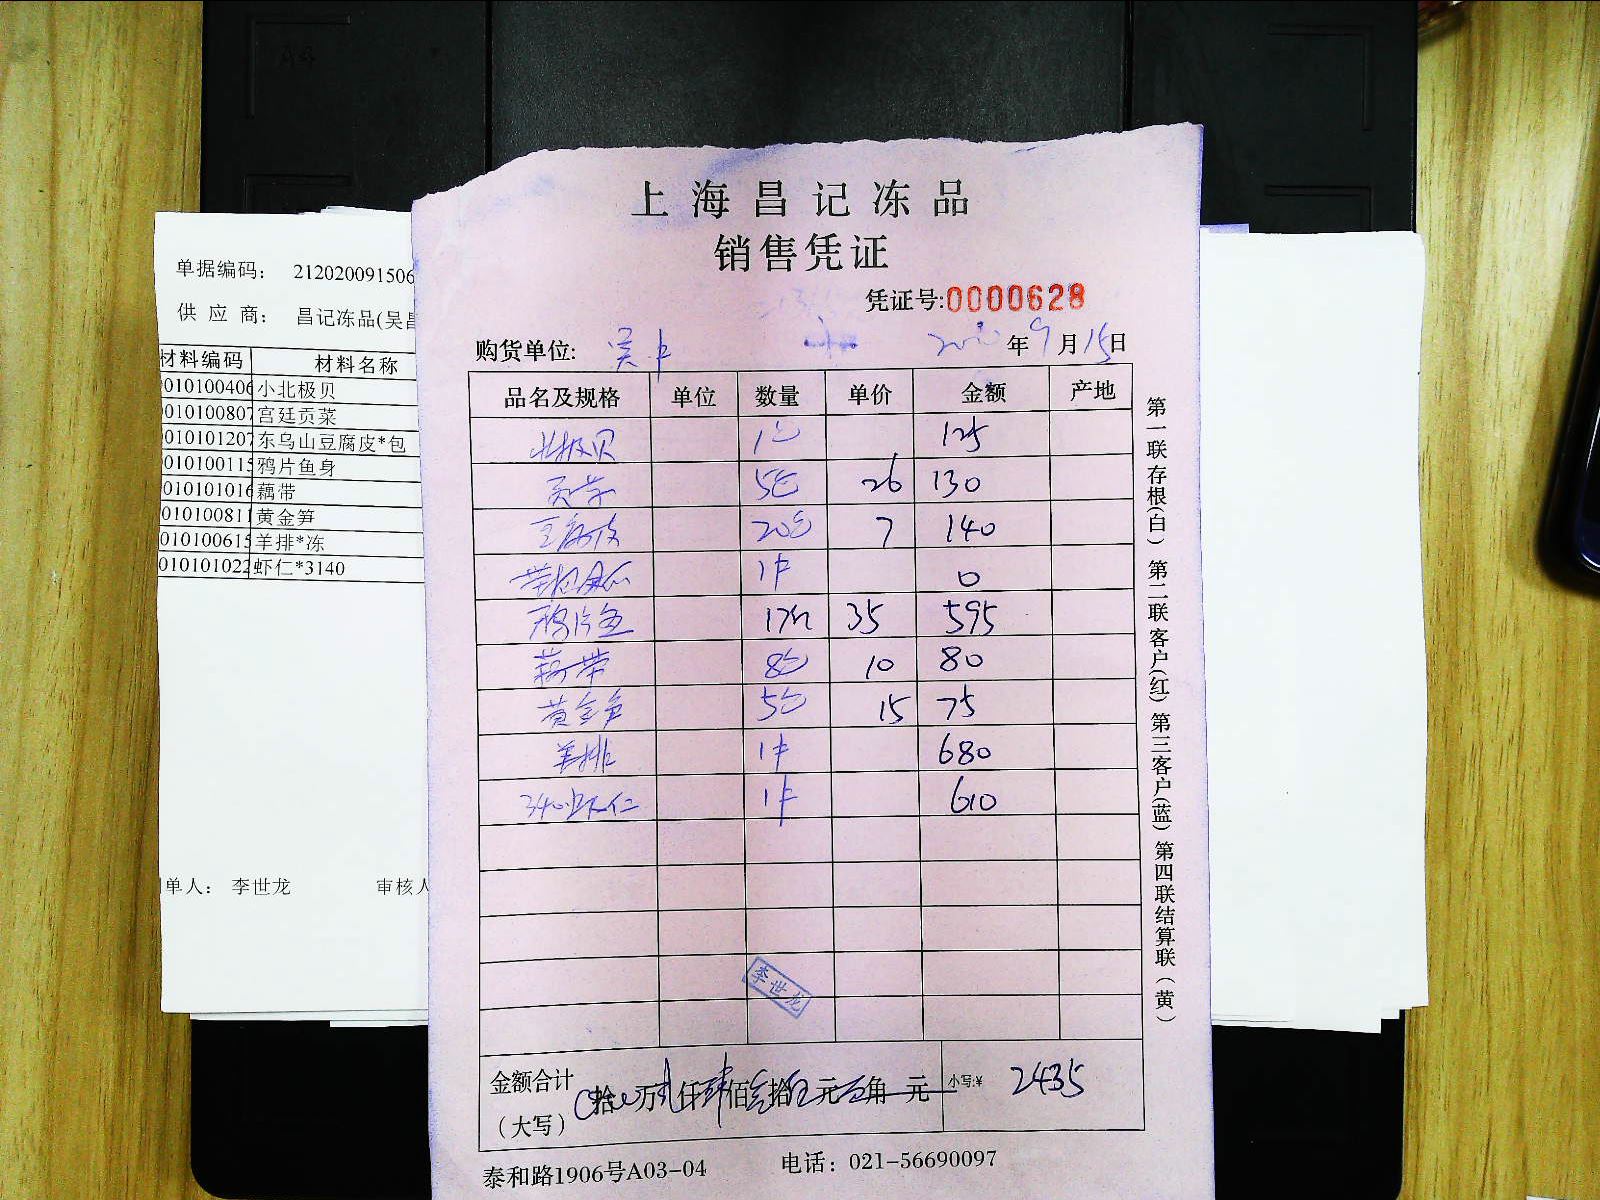 上海昌记冻品
销售凭证
凭证号:0000628
购货单位: 吴中 2020年9月15日
品名及规格 单位 数量 单价 金额 产地
北极贝 1包 125
贡菜 5包 26 130
豆腐皮 20包 7 140
1件 0
鸦片鱼 17斤 35 595
藕带 8包 10 80
黄金笋 5包 15 75
羊排 1件 680
3140虾仁 1件 610
李世龙
金额合计
(大写) 拾 万 贰仟肆佰叁拾伍元 角 元 小写:¥ 2435
泰和路1906号A03-04 电话：021-56690097
第一联存根(白) 第二联客户(红) 第三客户(蓝) 第四联结算联(黄)
单据编码： 21202009150
供应商： 昌记冻品(吴昌
材料编码 材料名称
010100406 小北极贝
010100807 宫廷贡菜
010101207 东乌山豆腐皮*包
010100115 鸦片鱼身
010101016 藕带
010100811 黄金笋
010100615 羊排*冻
010101022 虾仁*3140
单人： 李世龙 审核人